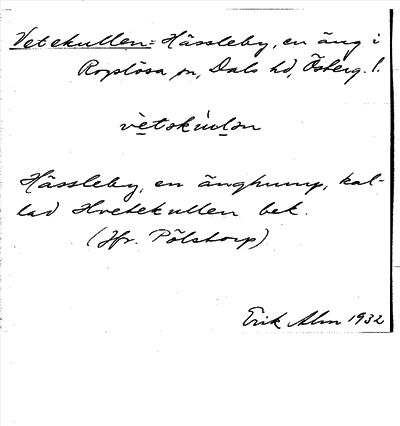 Vetekullen = Hässleby, en äng i
Rogslösa sn, Dals hd, Österg. l.
vètskùlən
Hässleby, en änghump, kal-
lad Hvetekullen bet.
(Jfr. Pålstorp)
Erik Alm 1932